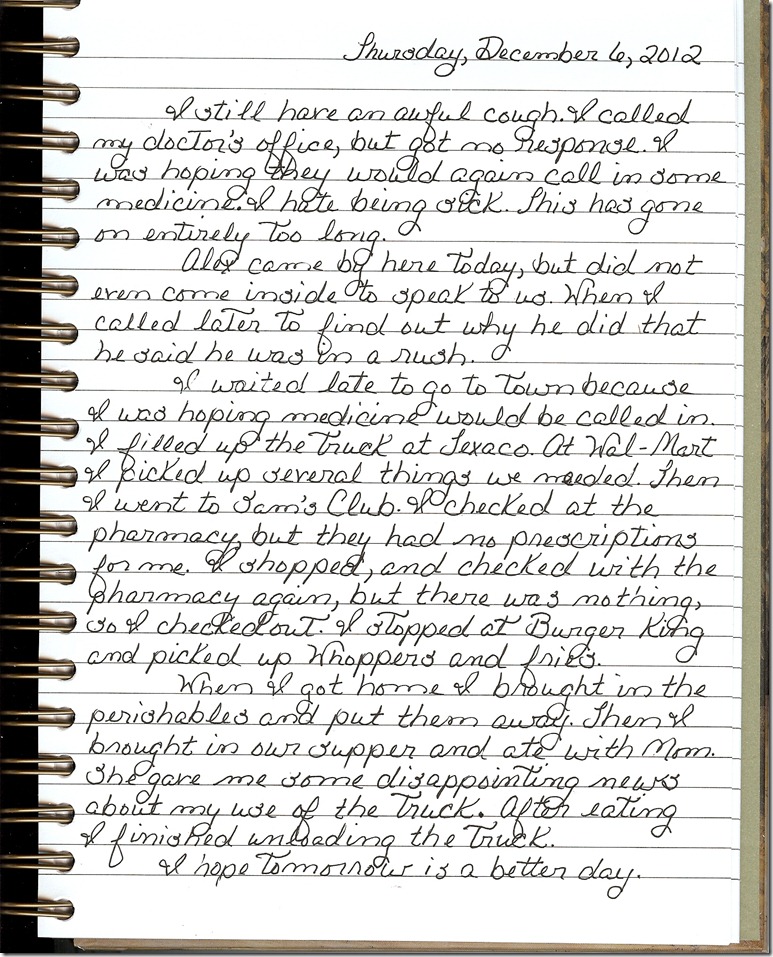 Thursday, December 6, 2012
I still have an awful cough. I called
my doctor's office, but got no response. I
was hoping they would again call in some
medicine. I hate being sick. This has gone
on entirely too long.
Alex came by here today, but did not
even come inside to speak to us. When I
called later to find out why he did that
he said he was in a rush.
I waited late to go to town because
I was hoping medicine would be called in.
I filled up the truck at Texaco. At Wal-Mart
I picked up several things we needed. Then
I went to Sam's Club. I checked at the
pharmacy, but they had no prescriptions
for me. I shopped, and checked with the
pharmacy again, but there was nothing,
so I checked out. I stopped at Burger King
and picked up Whoppers and fries.
When I got home I brought in the
perishables and put them away. Then I
brought in our supper and ate with Mom.
She gave me some disappointing news
about my use of the truck. After eating
I finished unloading the truck.
I hope tomorrow is a better day.